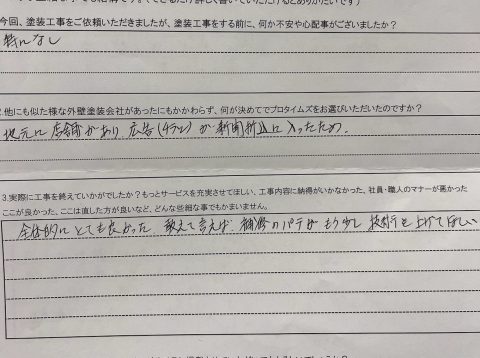 今回、塗装工事をご依頼いただきましたが、塗装工事をする前に、何か不安や心配事がございましたか？
特になし
2.他にも似た様な外壁塗装会社があったにもかかわらず、何が決めてでプロタイムズをお選びいただいたのですか？
地元に店舗があり、広告(チラシ)が新聞折込に入ったため。
3.実際に工事を終えていかがでしたか？もっとサービスを充実させてほしい、工事内容に納得がいかなかった、社員・職人のマナーが悪かった
ここが良かった、ここは直した方が良いなど、どんな些細な事でもかまいません。
全体的にとても良かった。敢えて言えば、補修のパテがもう少し技術を上げてほしい